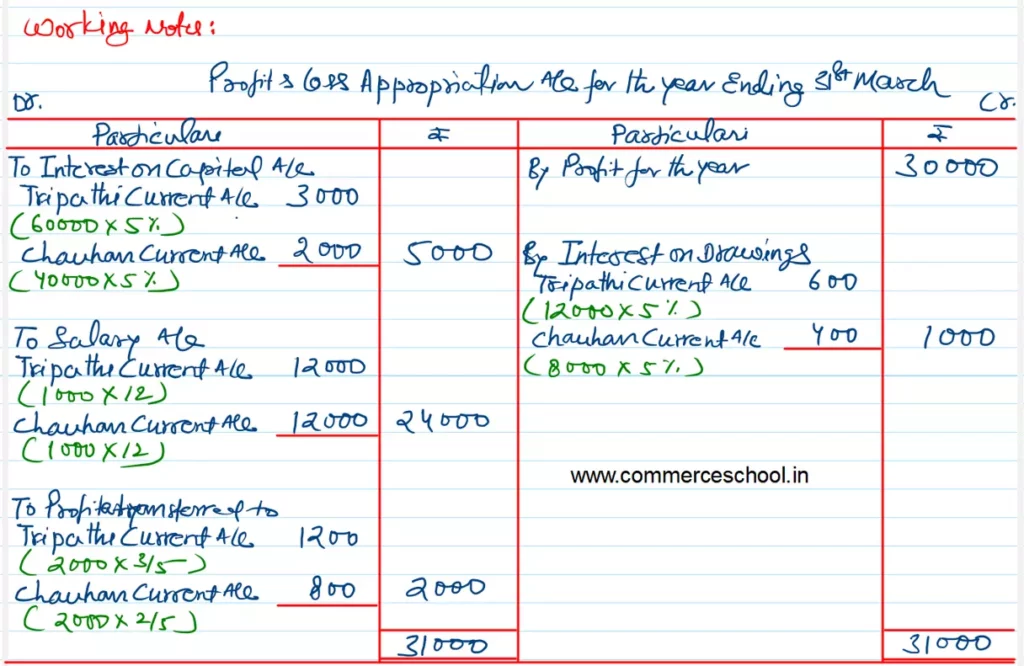 Working Notes:
Profit & Loss Appropriation A/c for th year Ending 31st March
Dr. Cr.
Particulars ₹ Particulars ₹
To Interest on Capital A/c By Profit for th year 30000
Tripathi Current A/c 3000
(60000 X 5%)
Chauhan Current A/c 2000 5000 By Interest on Drawings
(40000 X 5%) Tripathi Current A/c 600
(12000 X 5%)
To Salary A/c Chauhan Current A/c 400 1000
Tripathi Current A/c 12000 (8000 X 5%)
(1000 X 12)
Chauhan Current A/c 12000 24000
(1000 X 12)
www.commerceschool.in
To Profit transferred to
Tripathi Current A/c 1200
(2000 X 3/5)
Chauhan Current A/c 800 2000
(2000 X 2/5)
31000 31000